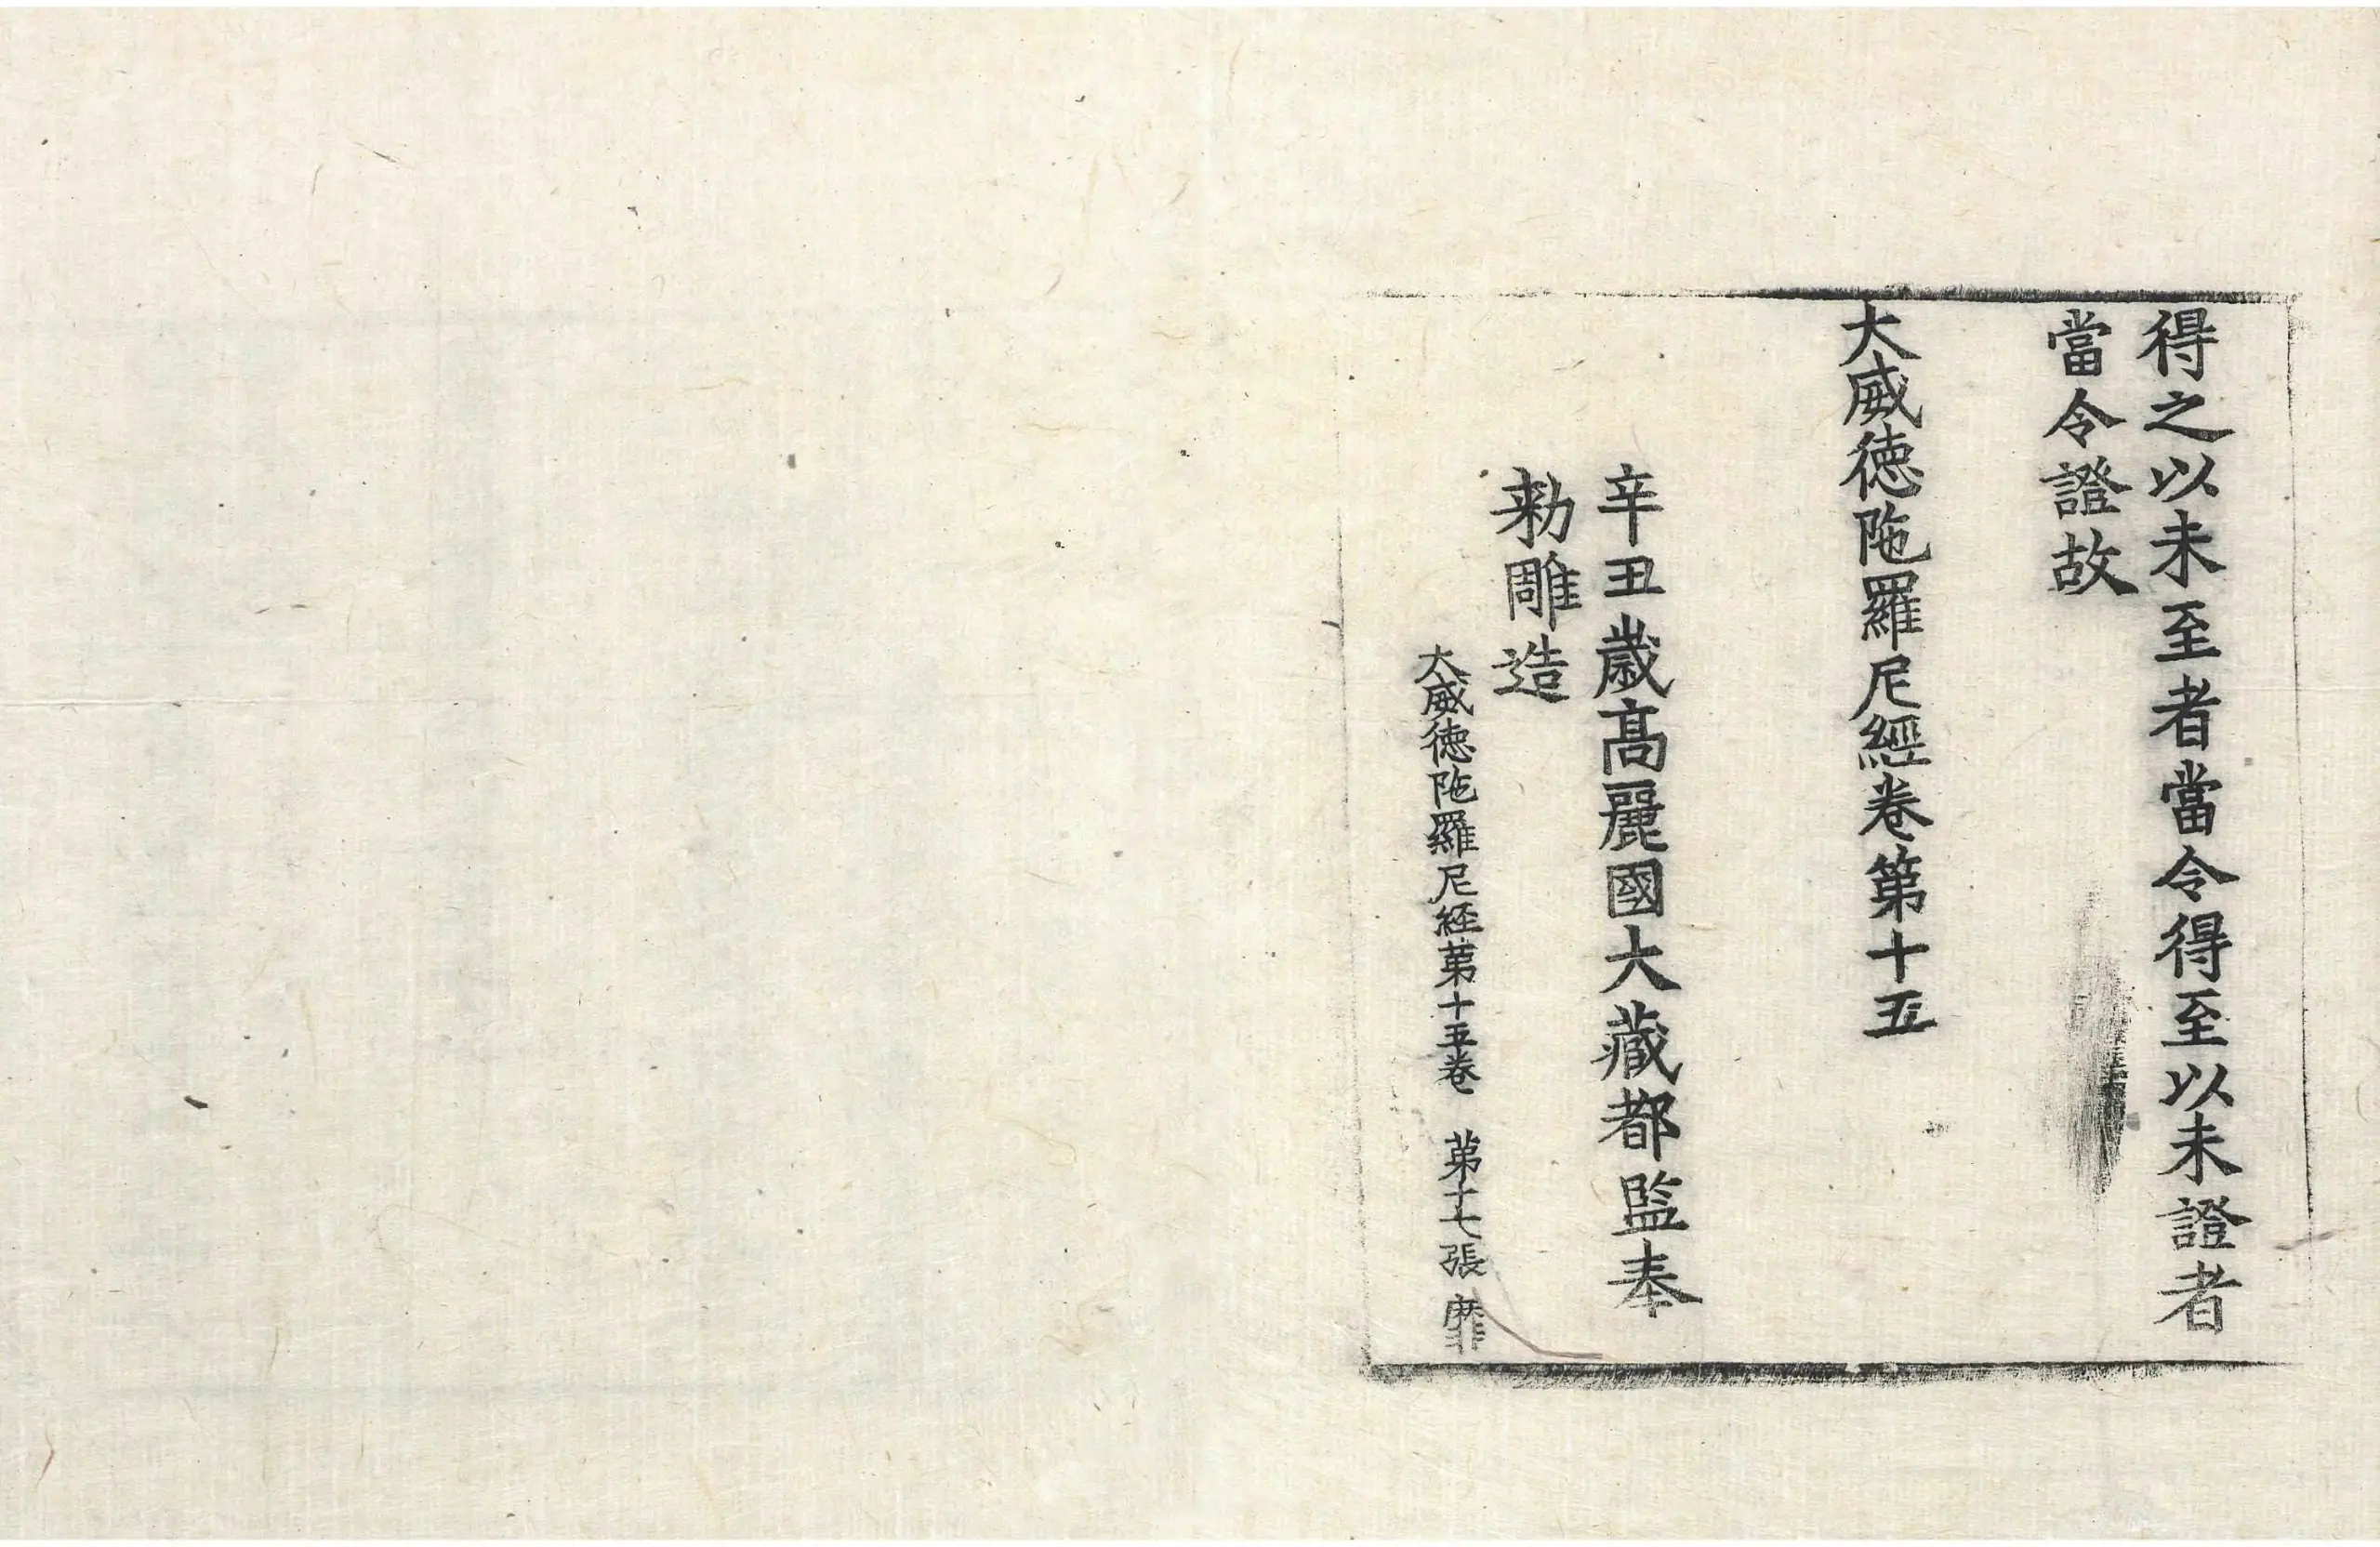 得之以未至者當令得至以未證者
當令證故
大威德陁羅尼經卷第十五
辛丑歲高麗國大藏都監奉
勑雕造
大威德陁羅尼經第十五卷 第十七張 靡